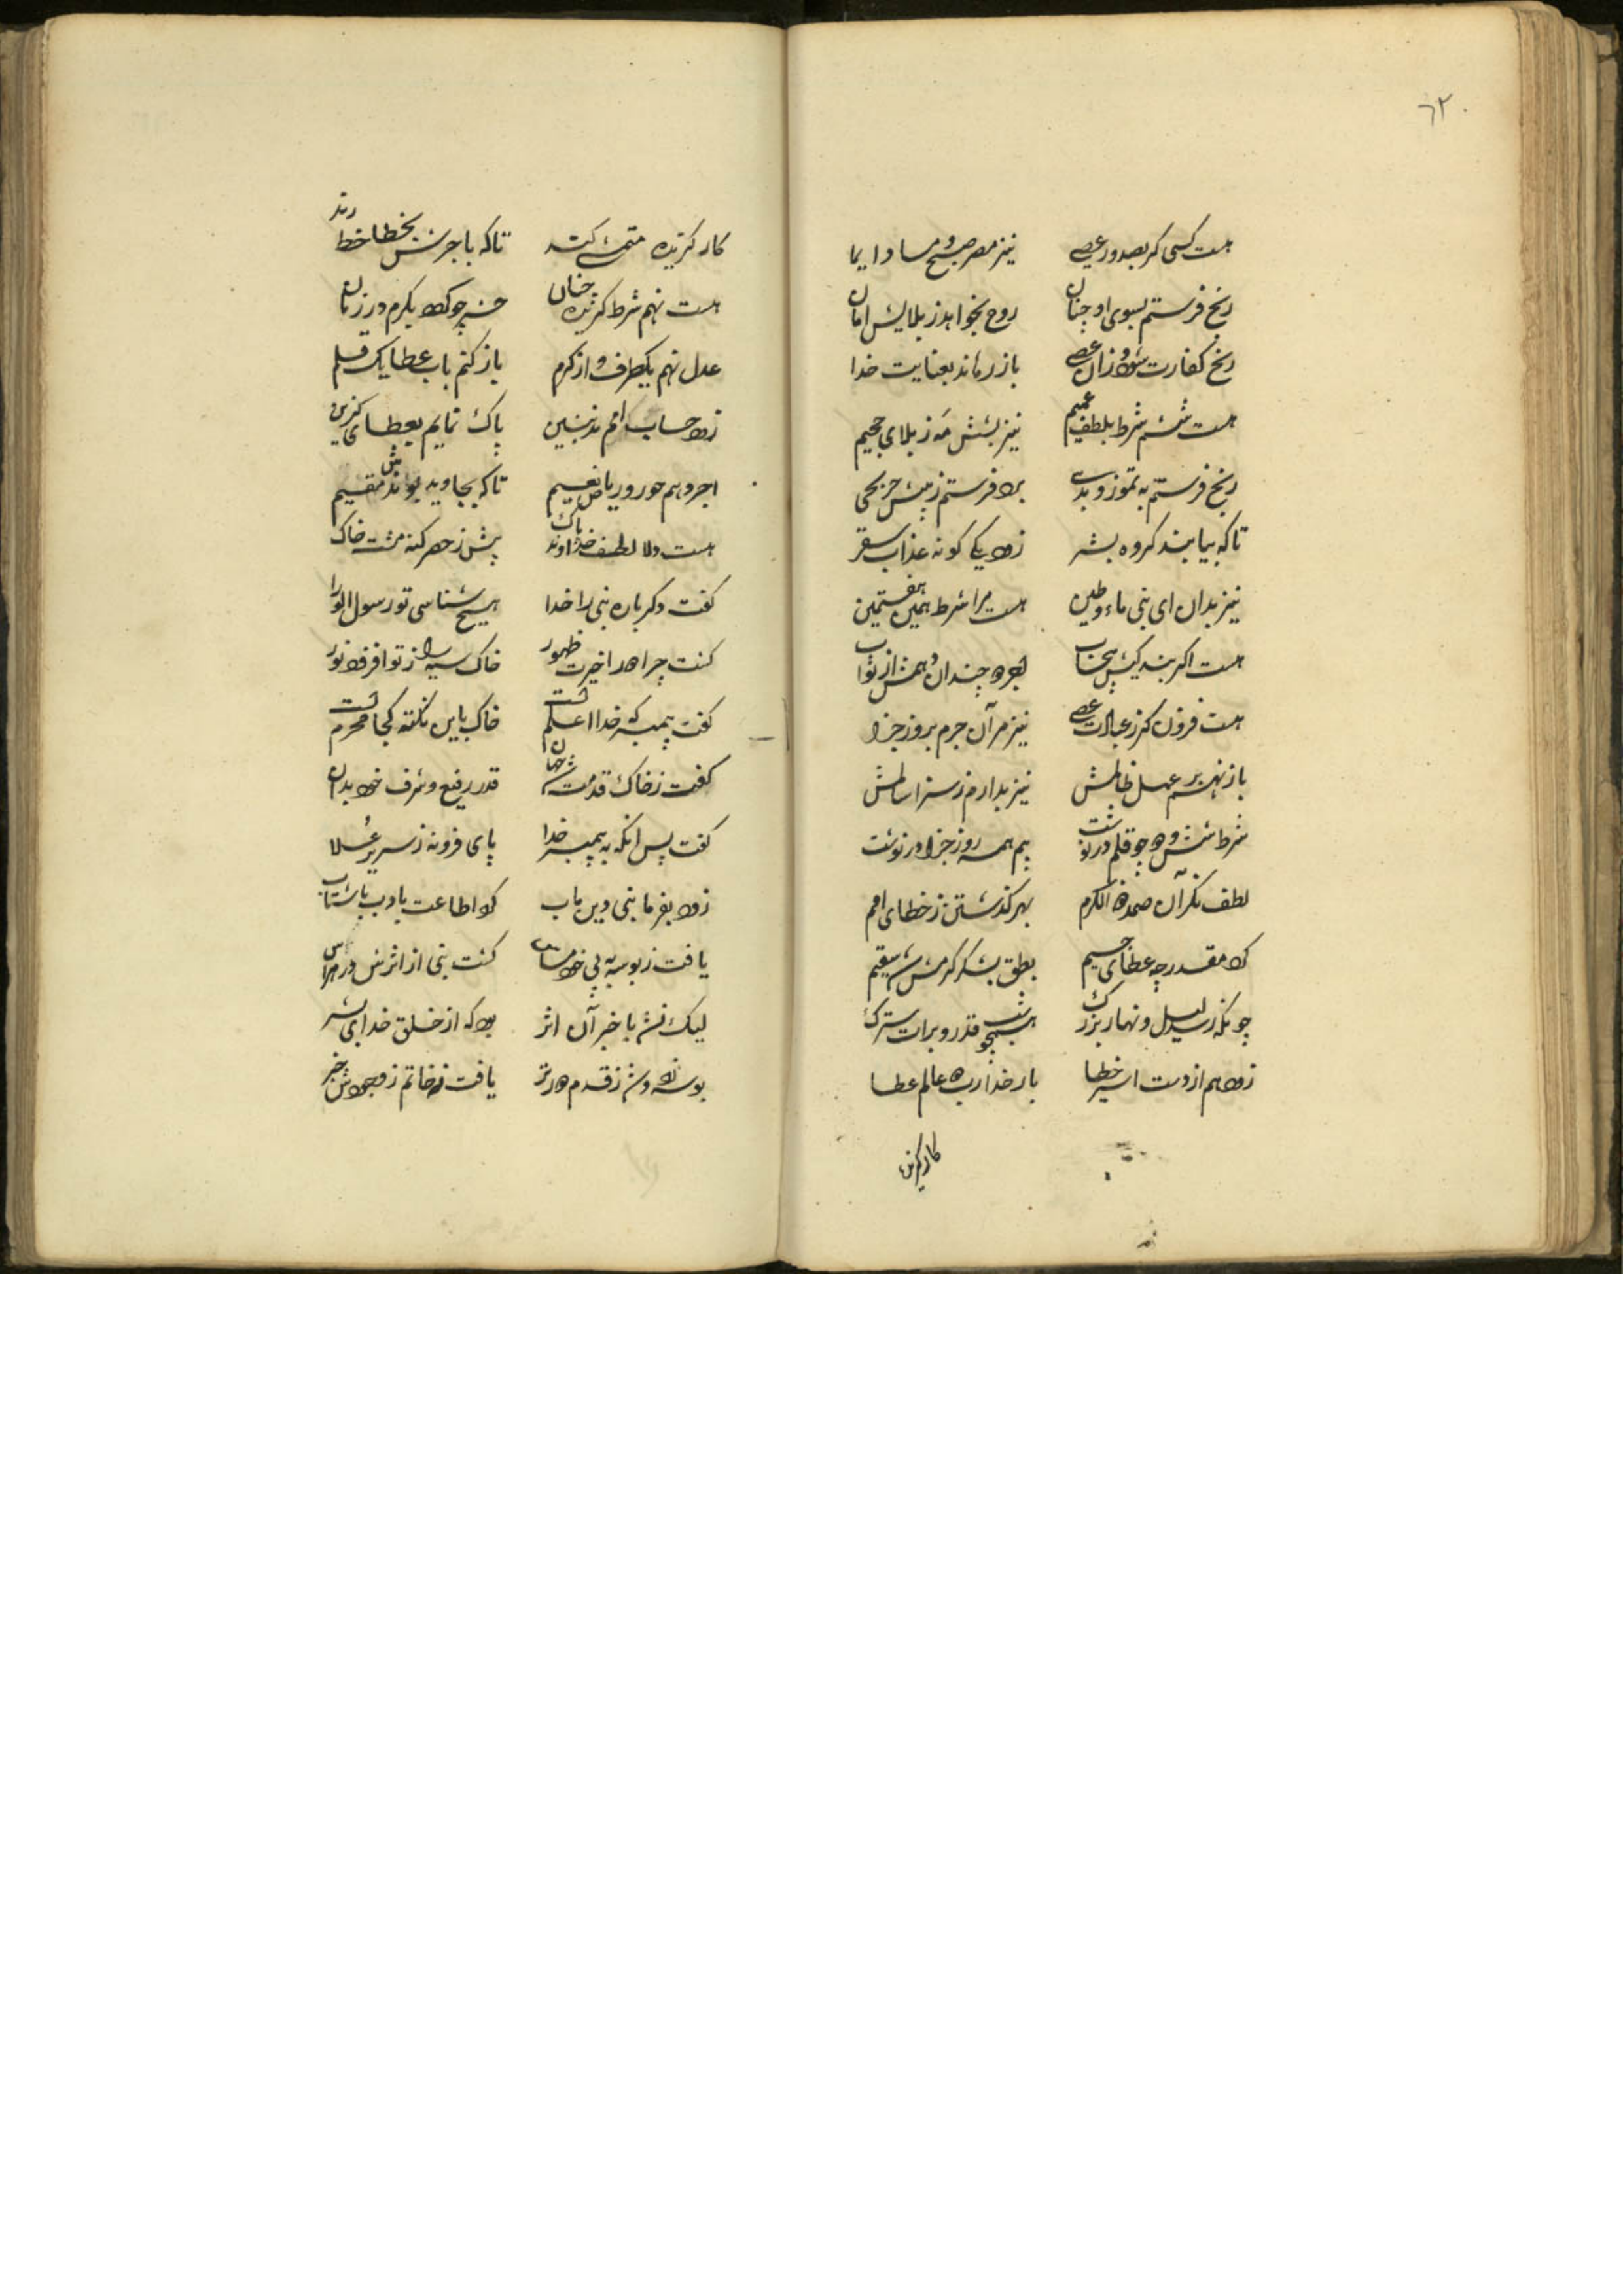 ٦٢
هست کسی کر بصدور عصی نیز مصر صبح و مسا دایما
رنخ فرستم بسوی او چنان روح بخواهد ز بلایش امان
رنخ کفارت شود زان عصی باز رماند بعنایت خدا
هست ششم شرط بلطف عمیم نیز بشش مه ز بلای جحیم
رنخ فرستم به تموز و بدی برد فرستم ز پیش
تا که بیابند کروه بشر زود یکی کونه عذاب سقر
نیز بدان ای نبی ماء و طین هست مرا شرط همین هفتمین
هست اکر بند کیش بیحساب اجرده چندان دهمش از ثواب
هست فزون کر ز عبادت عصی نیز مر آن جرم بروز جزا
باز نهم بر عمل ظالمش نیز بدارم ز سزا سالمش
شرط شش و ده چو قلم در نوشت بیم همه روز جزا در نوشت
لطف نکر آن صمد ذا الکرم بهر کذشتن ز خطای امم
کرد مقدر چه عطای جسیم بطق بشکر کرمش شد سقیم
چونکه رسد لیل و نهار بزرک همچو شب قدر و برات سترک
زود هم از دست اسیر خطا بار خدا رب عالم عطا
کار کزین
کار کزیده متمشی کند تا که باجرش بخطا خط زند
هست نهم شرط کزیده چنان چو کند بکرم در زمان
عدل نهم یکطرف و از کرم باز کنم باب عطا یک قلم
زود حساب امم مذنبین پاک نمایم بعطای کزین
اجر دهم حور و ریاض نعیم تا که بجاوید بوندش مقیم
هست دلا لطف خداوند پاک بیش ز حصر کنه مشت خاک
کفت دکر باره نبی را خدا هیچ شناسی تو رسول الورا
کفت چرا شد اخیرت ظهور خاک سیه را ز تو افزود نور
کفت پیمبر که خدا اعلمست خاک باین نکته کجا محرمست
کفت ز خاک قدمت شد جهان قدر رفیع و شرف خود بدان
کفت پس آنکه به پیمبر خدا پای فرو نه ز سریر علا
زود بفرما نبی دین مآب کرد اطاعت بادب با شتاب
یافت ز بوسه پی خود مساس کفت نبی از اثرش در هراس
لیک نشد با خبر آن اثر بود که از خلق خدای بشر
بوسه زد و شد ز قدم در تر یافت نه خاتم ز وجودش خبر